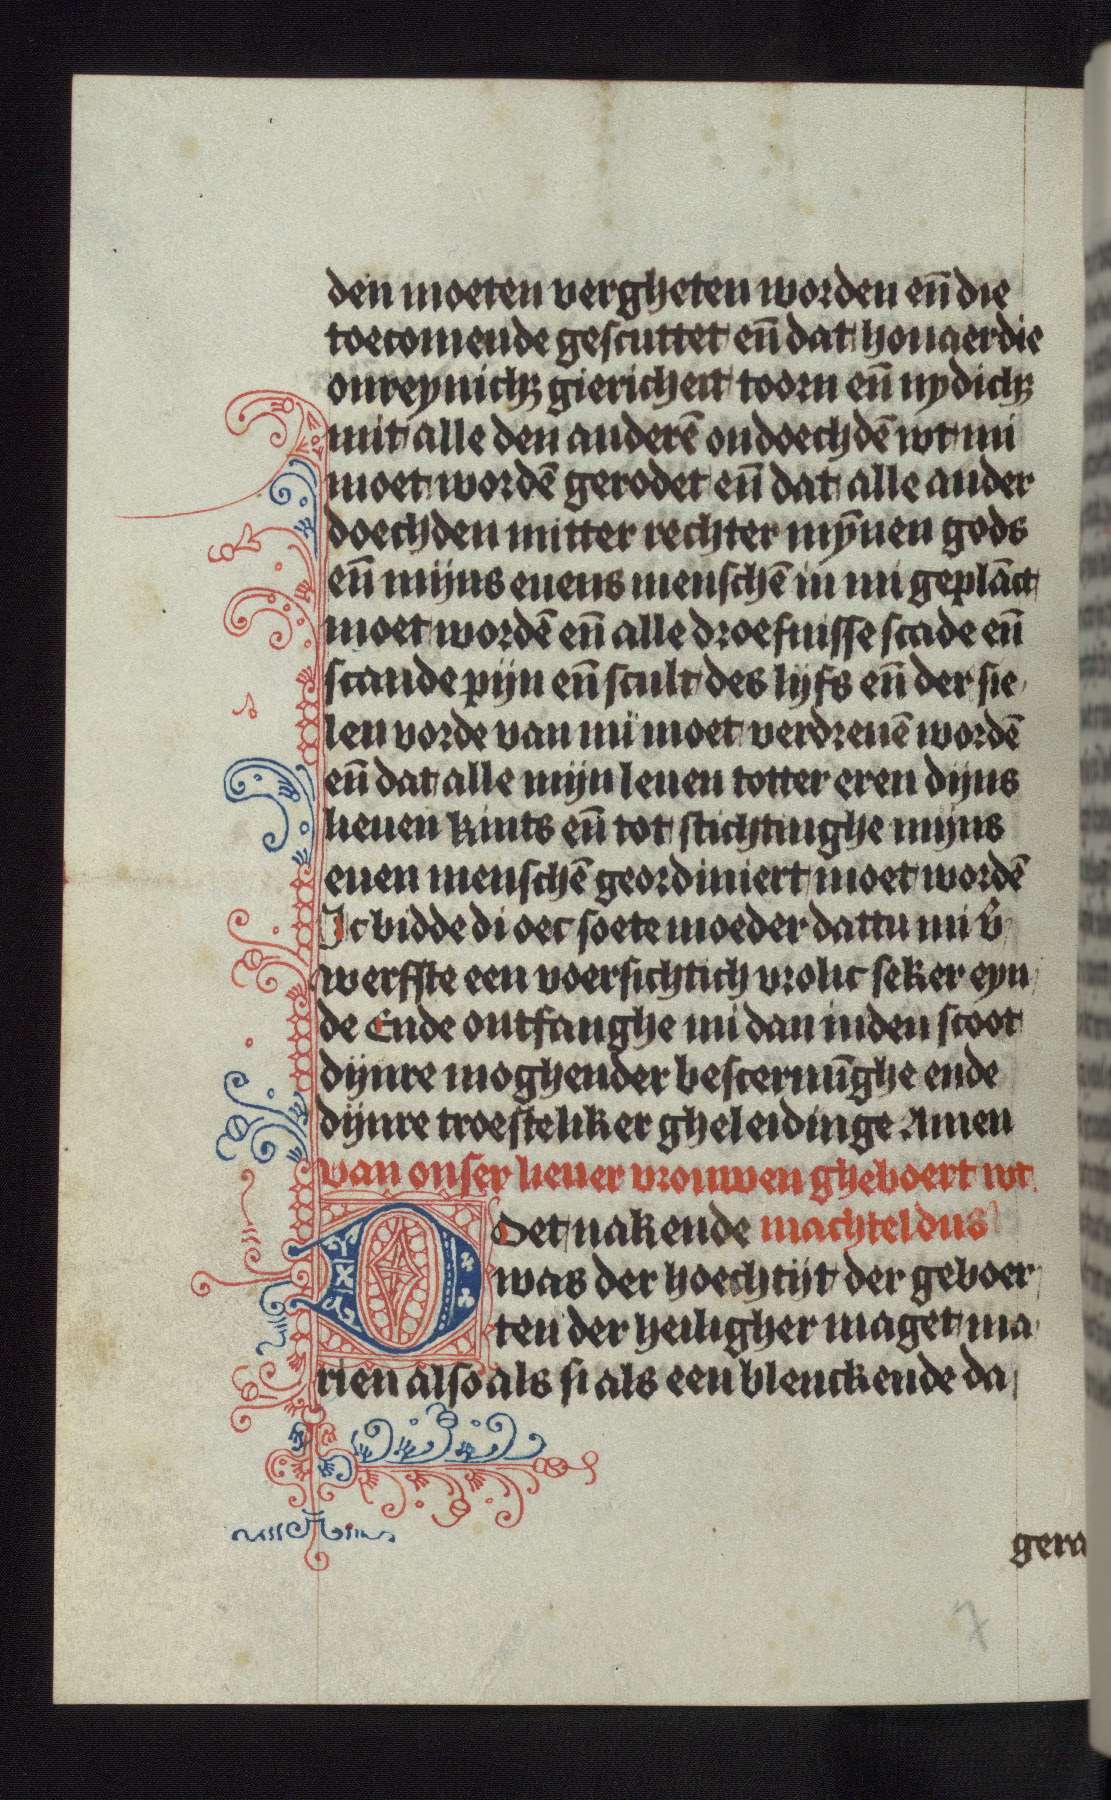 den moeten vergheten worden eñ die
toecomende gescuttet eñ dat houaerdie
onreynichꝫ giericheit toorn eñ nydichꝫ
mit alle den anderē ondoechdē wt mi
moet wordē gerodet eñ dat alle ander
doechden mitter rechter mȳnen gods
eñ mijns euens menschē in mi geplāct
moet wordē eñ alle droefnisse scade eñ
scande pijn eñ scult des lijfs eñ der sie
len vorde van mi moet verdreuē wordē
eñ dat alle mijn leuen totter eren dijns
lieuen kints eñ tot stichtinghe mijns
euen menschē geordiniert moet wordē
Ic bidde di oec soete moeder dattu mi v̄
werffste een voersichtich vrolic seker eyn
de Ende ontfanghe mi dan inden scoot
dijnre moghender beschermīghe ende
dijnre troesteliker gheleidinge Amen
van onser lieuer vrouwen gheboert wt
Doet nakende machteldus
was der hoechtijt der geboer
ten der heiligher maget ma
rien also als si als een blenckende da
gera
7